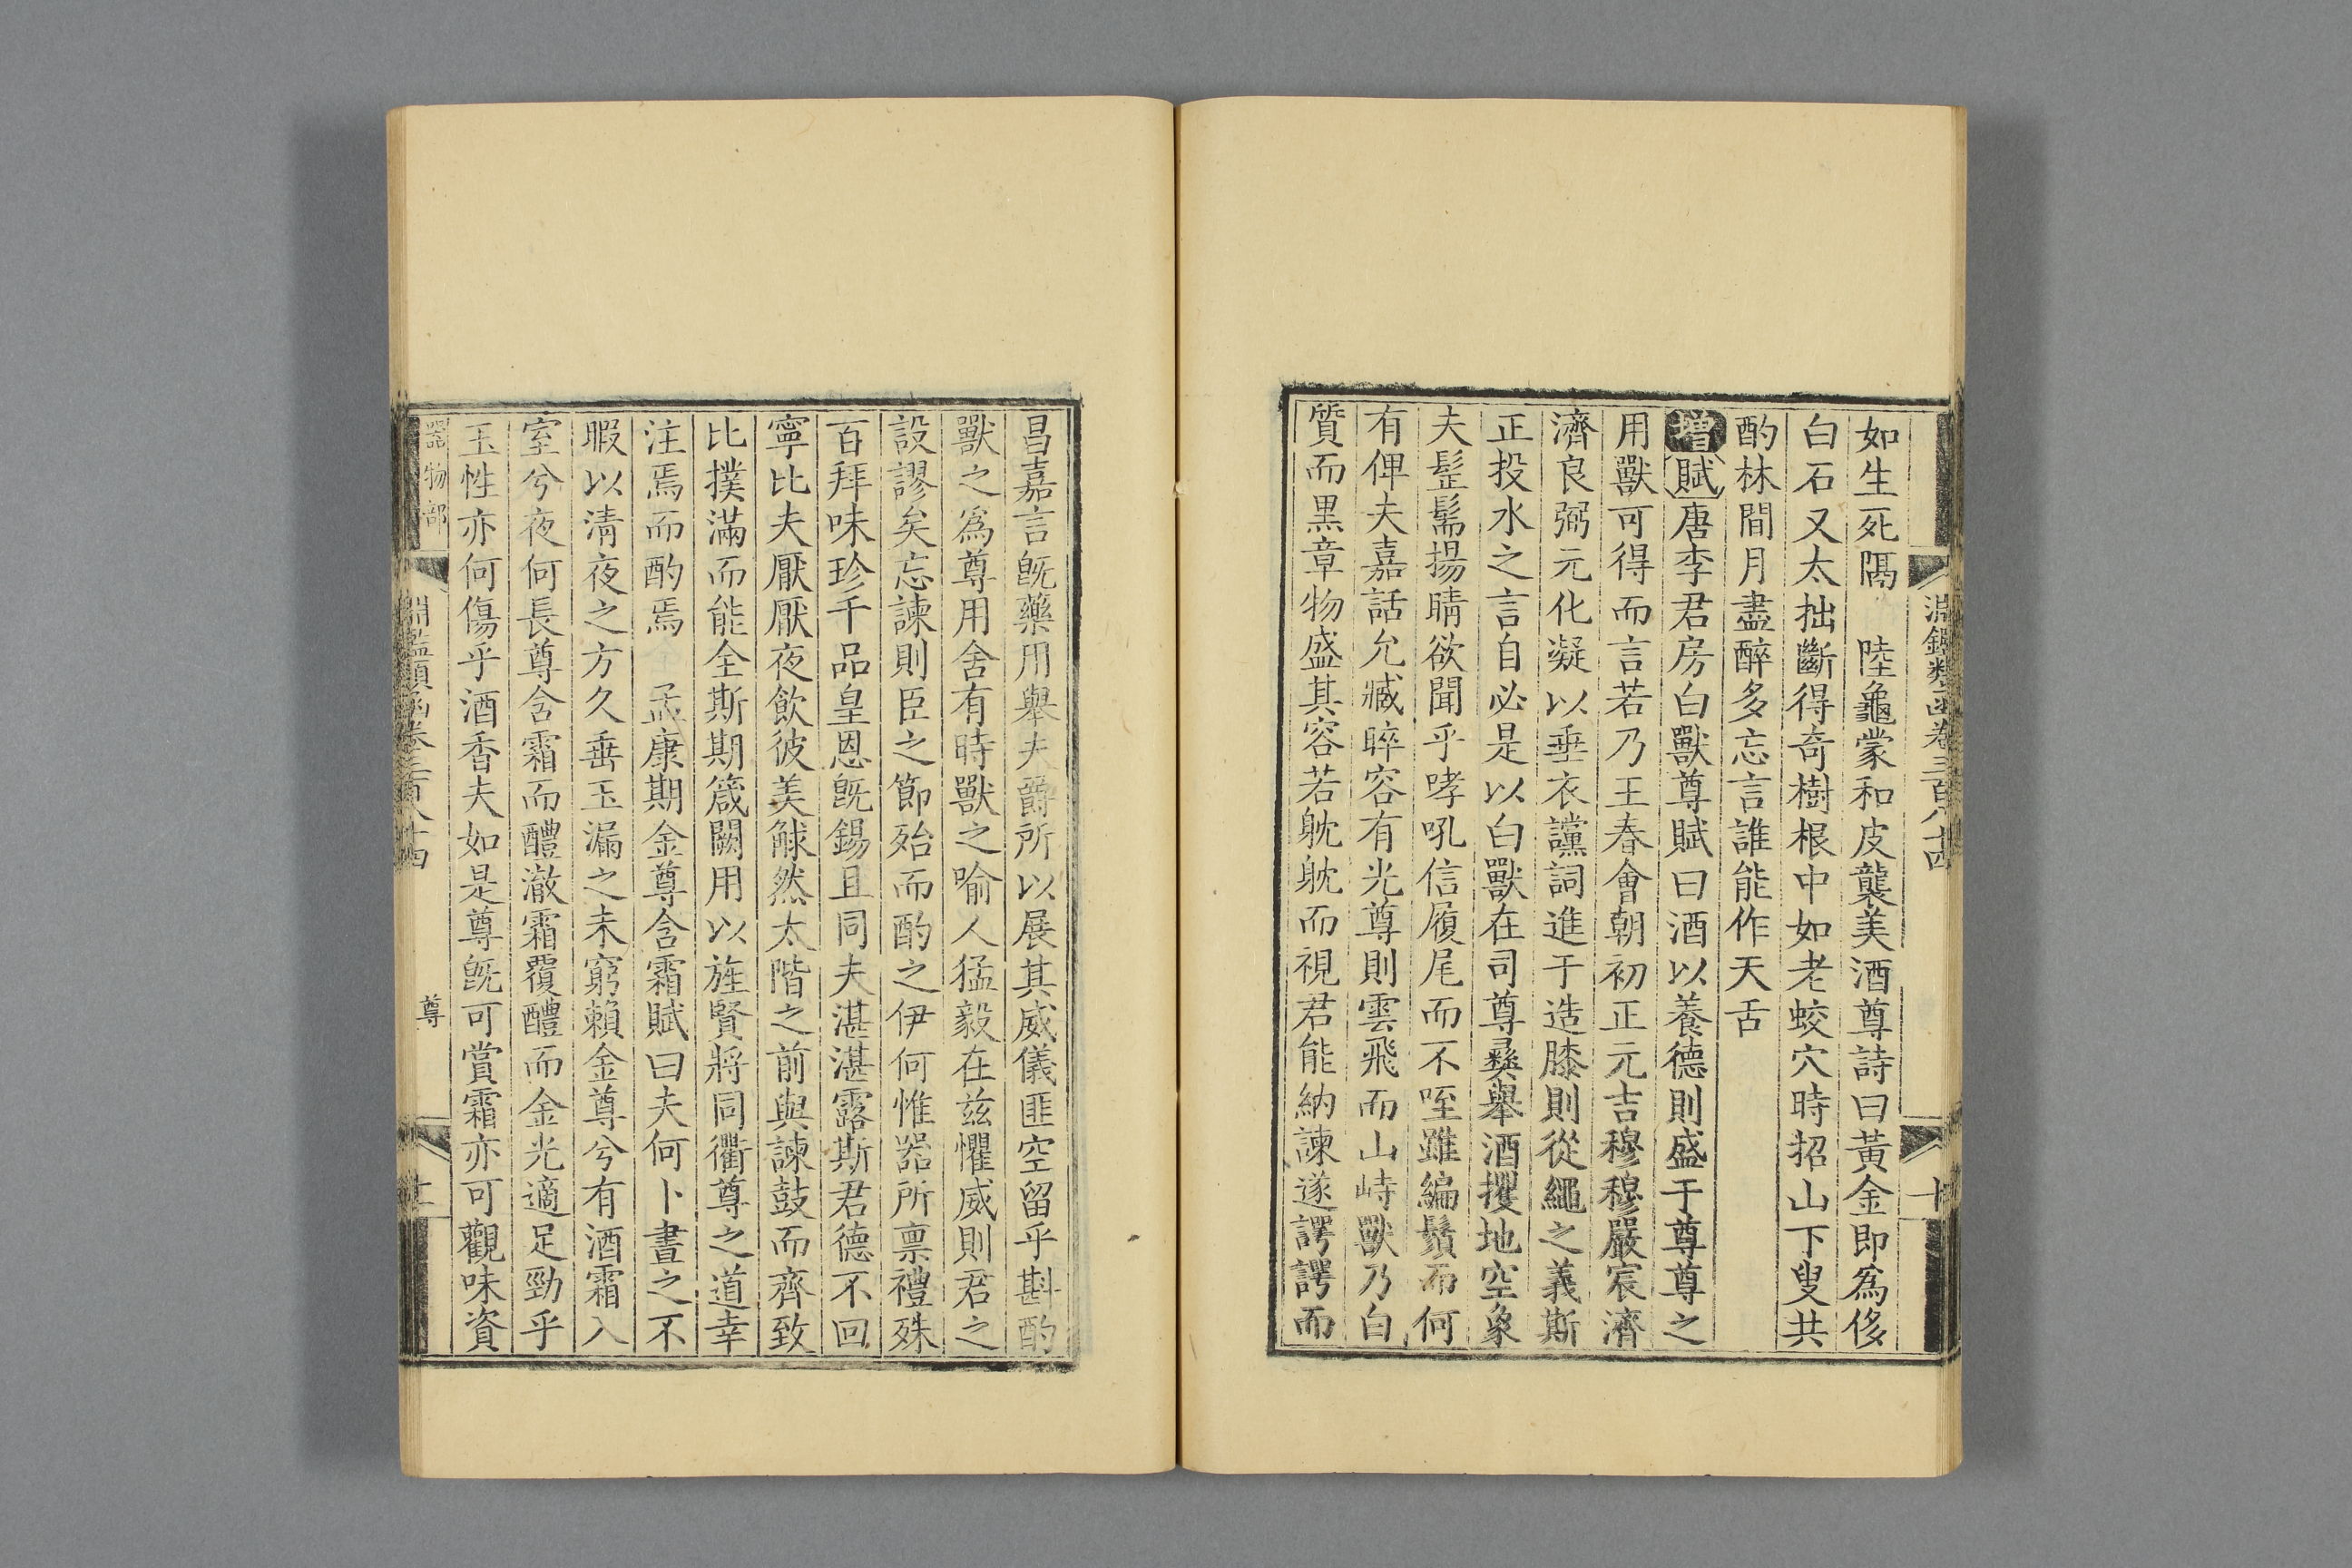 淵鑑類函卷三百八十四
十
如生死隅　陸龜蒙和皮襲美酒尊詩曰黃金即為侈
白石又太拙斷得奇樹根中如老蛟穴時招山下叟共
酌林間月盡醉多忘言誰能作天舌
增賦唐李君房白獸尊賦曰酒以養德則盛于尊尊之
用獸可得而言若乃王春會朝初正元吉穆穆嚴宸濟
濟良弼元化凝以垂衣讜詞進于造膝則從繩之義斯
正投水之言自必是以白獸在司尊彝舉酒攫地空象
夫髬髵揚睛欲聞乎哮吼信履尾而不咥雖編鬚而何
有俾夫嘉話允臧睟容有光尊則雲飛而山峙獸乃白
質而黑章物盛其容若躭躭而視君能納諫遂諤諤而
昌嘉言旣藥用舉夫爵所以展其威儀匪空留乎斟酌
獸之爲尊用舍有時獸之喻人猛毅在兹懼威則君之
設謬矣忘諫則臣之節殆而酌之伊何惟器所禀禮殊
百拜味珍千品皇恩旣錫且同夫湛湛露斯君德不回
寧比夫厭厭夜飲彼美觩然太階之前與諫鼓而齊致
比撲滿而能全斯期箴闕用以旌賢將同衢尊之道幸
注焉而酌焉　孟康期金尊含霜賦曰夫何卜晝之不
暇以淸夜之方久垂玉漏之未窮賴金尊兮有酒霜入
室兮夜何長尊含霜而醴澈霜覆醴而金光適足勁乎
玉性亦何傷乎酒香夫如是尊旣可賞霜亦可觀味資
器物部
淵鑑類函卷三百八十四
尊
十一